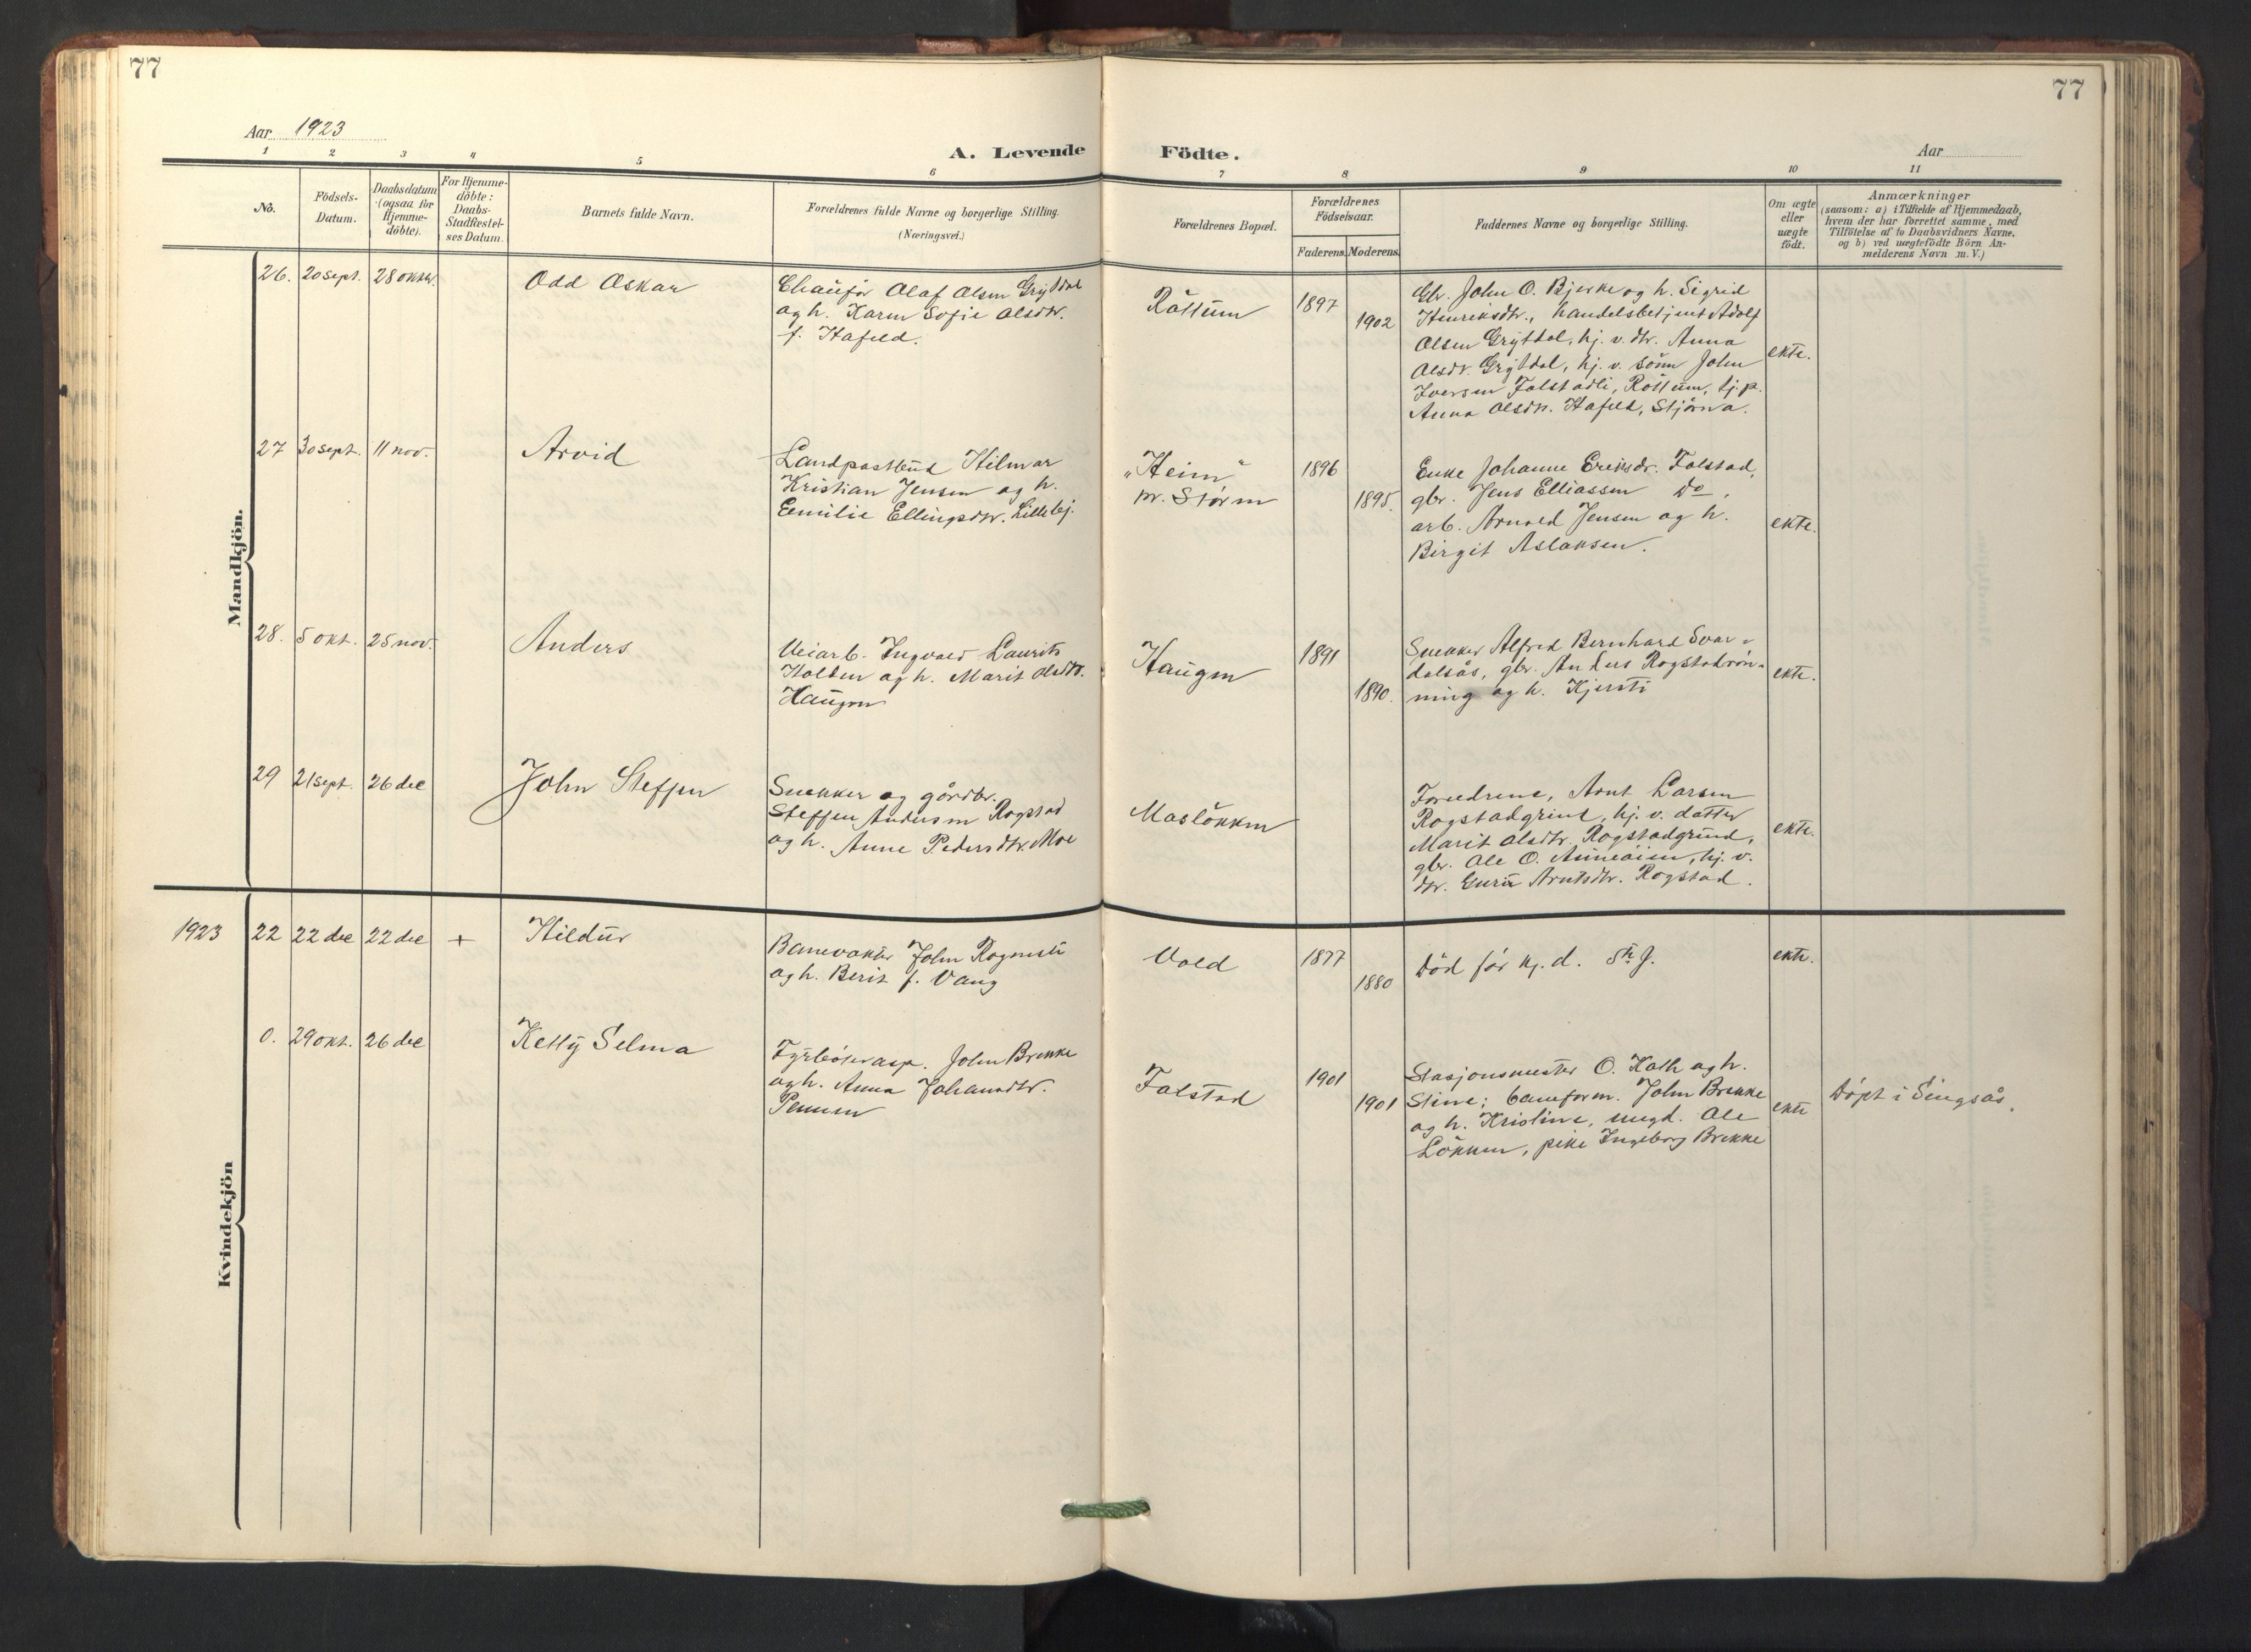 77
77
Aar 1923
Aar
A. Levende Födte.
1 2 3 4 5 6 7 8 9 10 11
No.
Födsels-
Datum.
Daabsdatum
(ogsaa for
Hjemme-
döbte).
For Hjemme-
döbte:
Daabs-
Stadfæstel-
ses Datum.
Barnets fulde Navn.
Forældrenes fulde Navne og borgerlige Stilling.
(Næringsvei.)
Forældrenes Bopæl.
Forældrenes
Födselsaar.
Faderens. Moderens.
Faddernes Navne og borgerlige Stilling.
Om ægte
eller
uægte
födt.
Anmærkninger
(saasom: a) i Tilfælde af Hjemmedaab,
hvem der har forrettet samme, med
Tilföielse af to Daabsvidners Navne,
og b) ved uægtefödte Börn An-
melderens Navn m. V.)
Mandkjön.
26. 20 sept. 28 oktbr.
Odd Oskar
Chaufför Olaf Olsen Gryttdal
og h. Karen Sofie Olsdtr.
f. Hafeld.
Röttum
1897
1902
Gbr. John O. Bjerke og h. Sigrid
Henriksdtr., handelsbetjent Adolf
Olsen Gryttdal, hj. v. dtr. Anna
Olsdtr. Gryttdal, hj. v. sönn John
Iversen Folstadli, Röttum, tj.p.
Anna Olsdtr. Hafeld, Stjörna.
ekte.
27 30 sept. 11 nov.
Arvid
Landpostbud Hilmar
Kristian Jensen og h.
Emilie Ellingsdtr. Lillebj.
"Heim"
pr. Stören
1896
1895.
Enke Johanne Eriksdr. Folstad,
gbr. Jens Elliassen Do,
arb. Arnold Jensen og h.
Birgit Aslaksen.
ekte.
28. 5 okt. 25 nov.
Anders
Veiarb. Ingvald Laurits
Holden og h. Marit Olsdtr.
Haugen
Haugen
1891
1890.
Snekker Alfred Bernhard Svar-
dalsås, gbr. Anders Rogstadrön-
ning og h. Kjersti
ekte.
29 21 sept. 26 dec
John Steffen
Snekker og gårdbr.
Steffen Andersen Rogstad
og h. Anne Pedersdtr. Moe
Maslökken
Foreldrene, Arnt Larsen
Rogstadgrind, hj. v. datter
Marit Olsdtr. Rogstadgrind,
gbr. Ole O. hj. v.
dtr. Guru Arntsdtr. Rogstad.
ekte.
1923
Kvindekjön
22 22 dec 22 dec +
Hildur
Banevokter John Rognesli
og h. Berit f. Vang
Vold
1877
1880
Död för kj. d.
ekte.
0. 29 okt. 26 dec
Ketty Selma
Fyrböterasp. John Brekke
og h. Anna Johansdtr.
Folstad
1901
1901
Stasjonsmester O. Koth og h.
Stine; baneform. John Brekke
og h. Kristine, ungd. Ole
Lökken, pike Ingeborg Brekke
ekte
Döpt i Singsås.